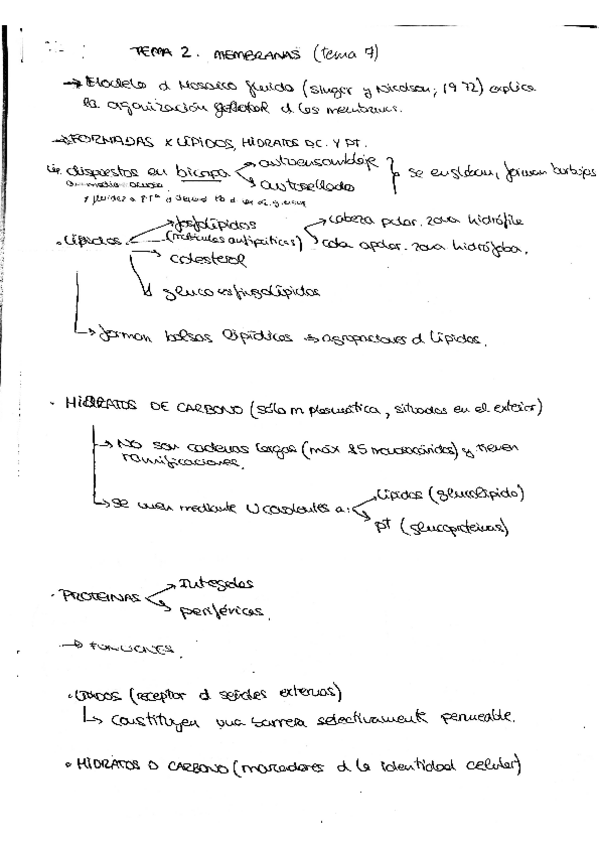 TEMA 2. MEMBRANAS (tema 7)
→ Modelo d Mosaico fluido (Singer y Nicolson, 1972) explica
la organización general d las membranas.
→ FORMADAS X LÍPIDOS, HIDRATOS DC. Y PT.
Lip. dispuestos en bicapa → autoensamblaje
→ autosellado
se engloban, forman burbujas
En medio acuoso
· Lípidos → fosfolípidos
(moléculas antipáticas)
→ cabeza polar. zona hidrófila
→ cola apolar. zona hidrófoba.
→ colesterol
→ glucoesfingolípidos
→ forman balsas lipídicas → agrupaciones d lípidos.
· HIDRATOS DE CARBONO (sólo m plasmática, situados en el exterior)
→ NO son cadenas largas (máx 15 monosacáridos) y tienen
ramificaciones.
→ Se unen mediante U covalentes a: → Lípidos (glucolípido)
→ pt (glucoproteínas)
· PROTEINAS → Integrales
→ periféricas.
→ FUNCIONES.
· LIPIDOS (receptor d señales externas)
→ Constituyen una barrera selectivamente permeable.
· HIDRATOS D CARBONO (marcadores d la identidad celular)